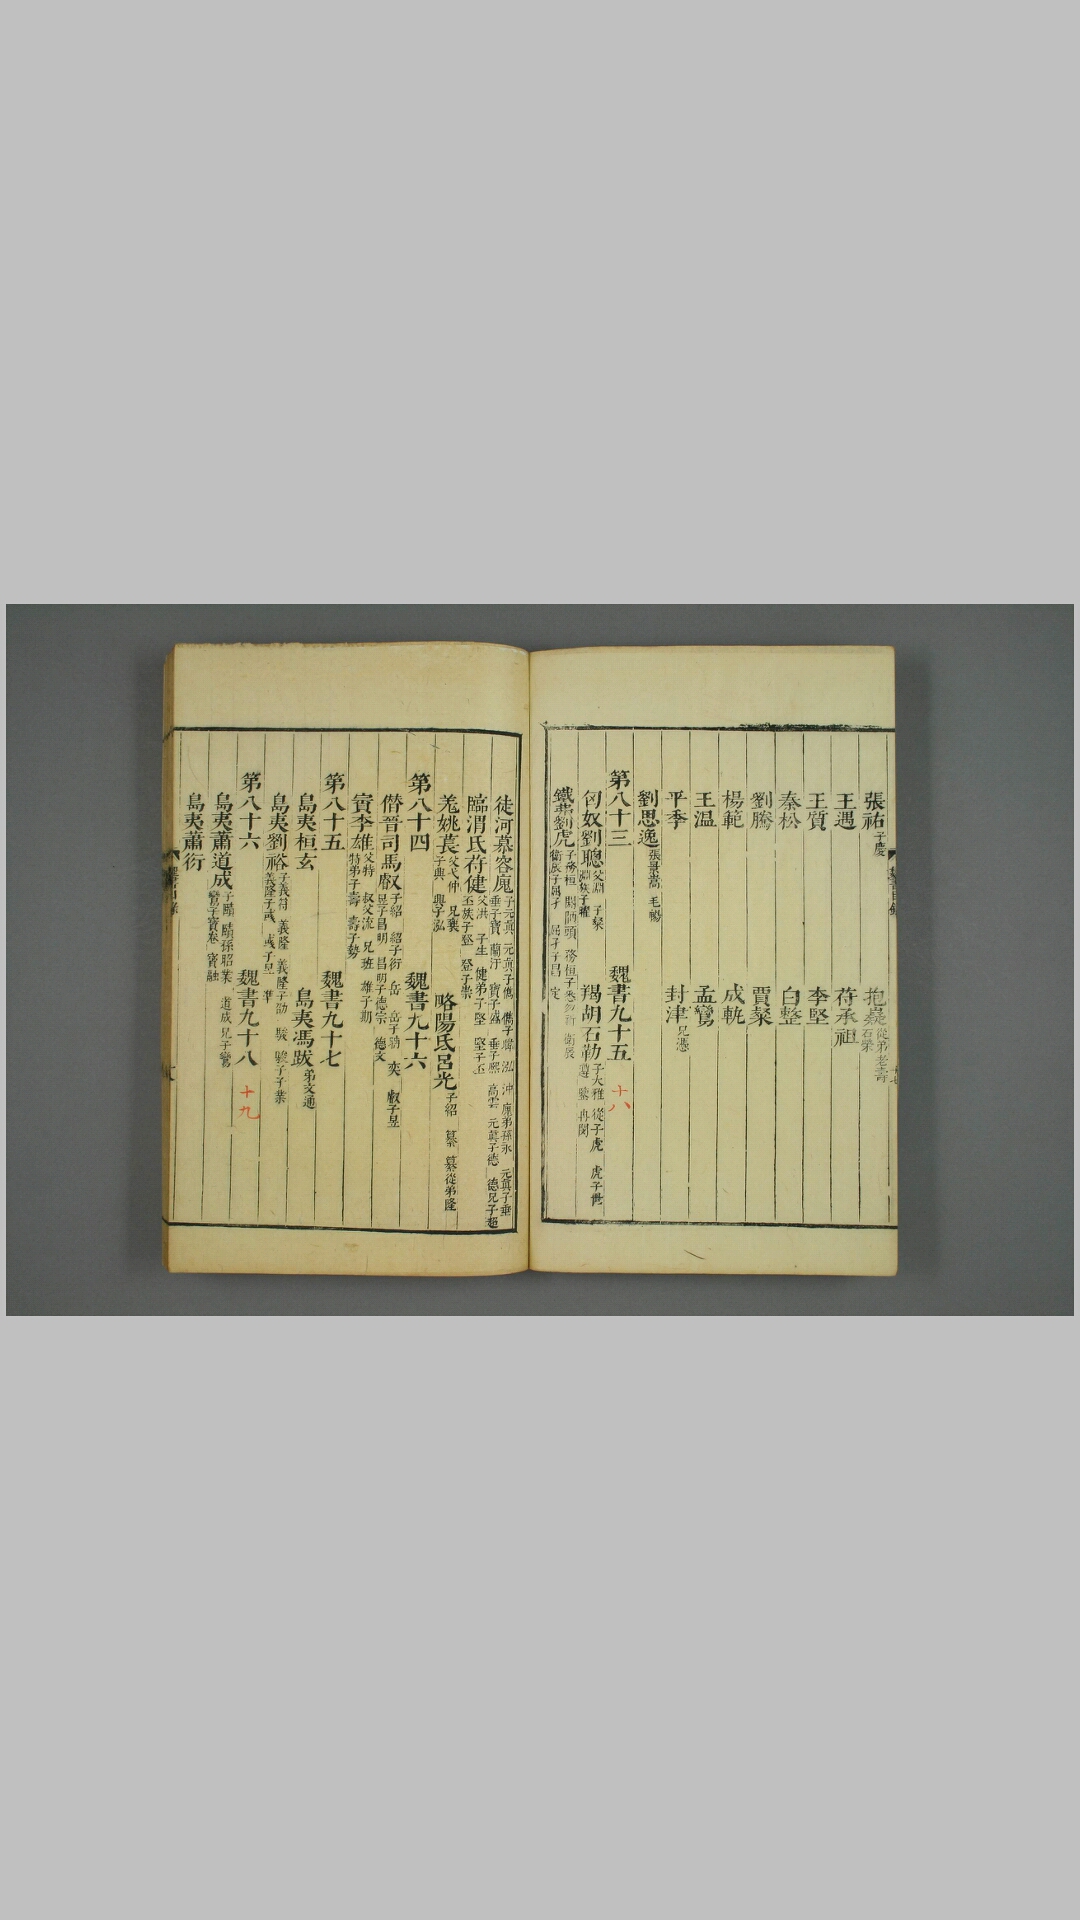 張祐子慶 抱嶷從弟老壽 石榮
王遇 苻承祖
王質 李堅
秦松 白整
劉騰 賈粲
楊範 成軌
王温 孟鸞
平季 封津兄憑
劉思逸張景嵩 毛暢
第八十三 魏書九十五 十八
匈奴劉聰父淵 子粲 淵族子曜 羯胡石勒子大雅 從子虎 虎子世 遵 鑒 冉閔
鐵弗劉虎子務桓 閼陋頭 務桓子悉勿祈 衛辰 衛辰子屈孑 屈孑子昌 定
徒河慕容廆子元真 元真子儁 儁子暐 泓 沖 廆弟孫永 元真子垂 垂子寶 蘭汗 寶子盛 垂子熙 高雲 元真子德 德兄子超
臨渭氐苻健父洪 子生 健弟子堅 堅子丕 丕族子登 登子崇
羌姚萇父弋仲 兄襄 子興 興子泓 略陽氐呂光子紹 纂 纂從弟隆
第八十四 魏書九十六
僭晉司馬叡子紹 紹子衍 岳 岳子聃 奕 叡子昱 昱子昌明 昌明子德宗 德文
賨李雄父特 叔父流 兄班 雄子期 特弟子壽 壽子勢
第八十五 魏書九十七
島夷桓玄 島夷馮跋弟文通
島夷劉裕子義符 義隆 義隆子劭 駿 駿子子業 義隆子彧 彧子昱 準
第八十六 魏書九十八 十九
島夷蕭道成子賾 賾孫昭業 道成兄子鸞 鸞子寶卷 寶融
島夷蕭衍